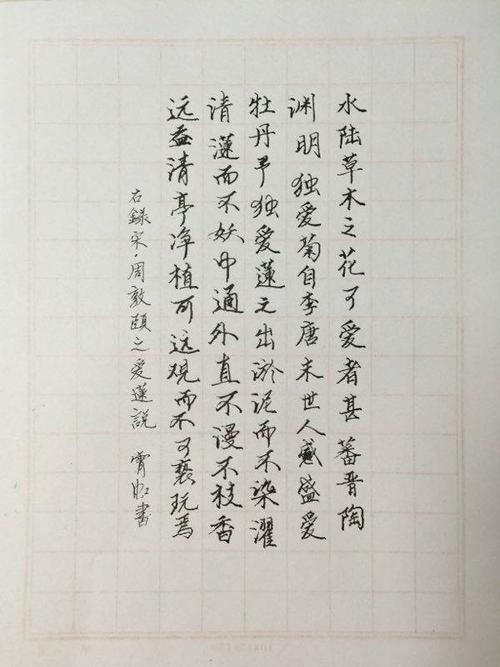 水陆草木之花可爱者甚蕃晋陶
渊明独爱菊自李唐末世人咸盛爱
牡丹予独爱蓮之出淤泥而不染濯
清漣而不妖中通外直不漫不枝香
远益清亭净植可远观而不可亵玩焉
右録宋·周敦颐之爱蓮説 霄虹書